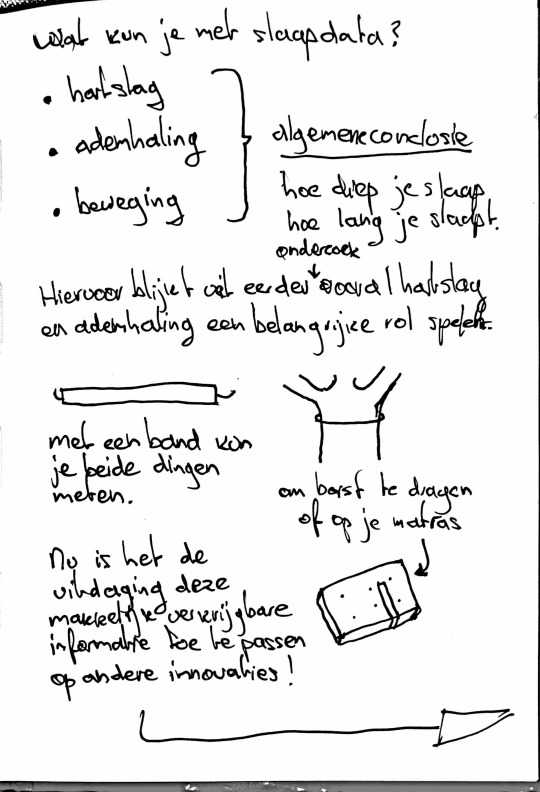 Wat kun je met slaapdata?
• hartslag
• ademhaling
• beweging
algemene conclusie
hoe diep je slaap
hoe lang je slaapt.
onderzoek
Hiervoor blijkt uit eerder vooral hartslag
en ademhaling een belangrijke rol spelen.
met een band kun
je beide dingen
meten.
om borst te dragen
of op je matras
Nu is het de
uitdaging deze
makkelijk verkrijgbare
informatie toe te passen
op andere innovaties!